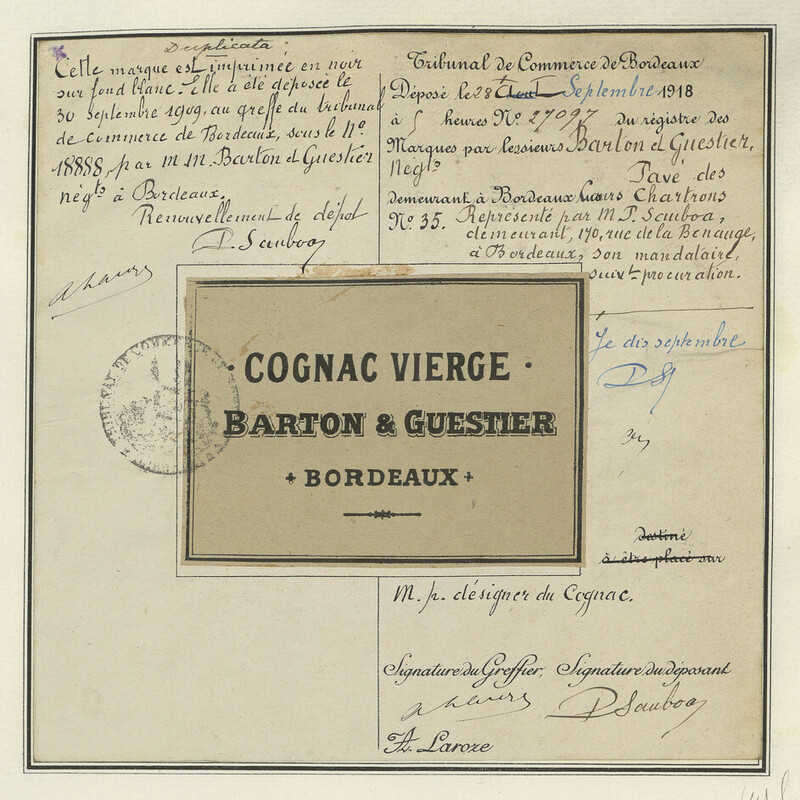 Duplicata :
Cette marque est imprimée en noir
sur fond blanc. Elle a été déposée le
30 septembre 1909, au greffe du tribunal
de commerce de Bordeaux, sous le N°
18888, par M.M. Barton et Guestier
négts à Bordeaux.
Renouvellement de dépôt
P. Sauboa
Tribunal de Commerce de Bordeaux
Déposé le 28 Août Septembre 1918
à 5 heures N° 27097 du régistre des
Marques par lessieurs Barton et Guestier,
Négts
Pavé des
demeurant à Bordeaux Cours Chartrons
N° 35. Représenté par M. P. Sauboa,
demeurant, 170, rue de la Benauge,
à Bordeaux, son mandataire,
suivt procuration.
Je dis septembre
PS
· COGNAC VIERGE ·
BARTON & GUESTIER
BORDEAUX
destiné
à être placé sur
M. p. désigner du Cognac.
Signature du Greffier, Signature du déposant
P Sauboa
A. Laroze